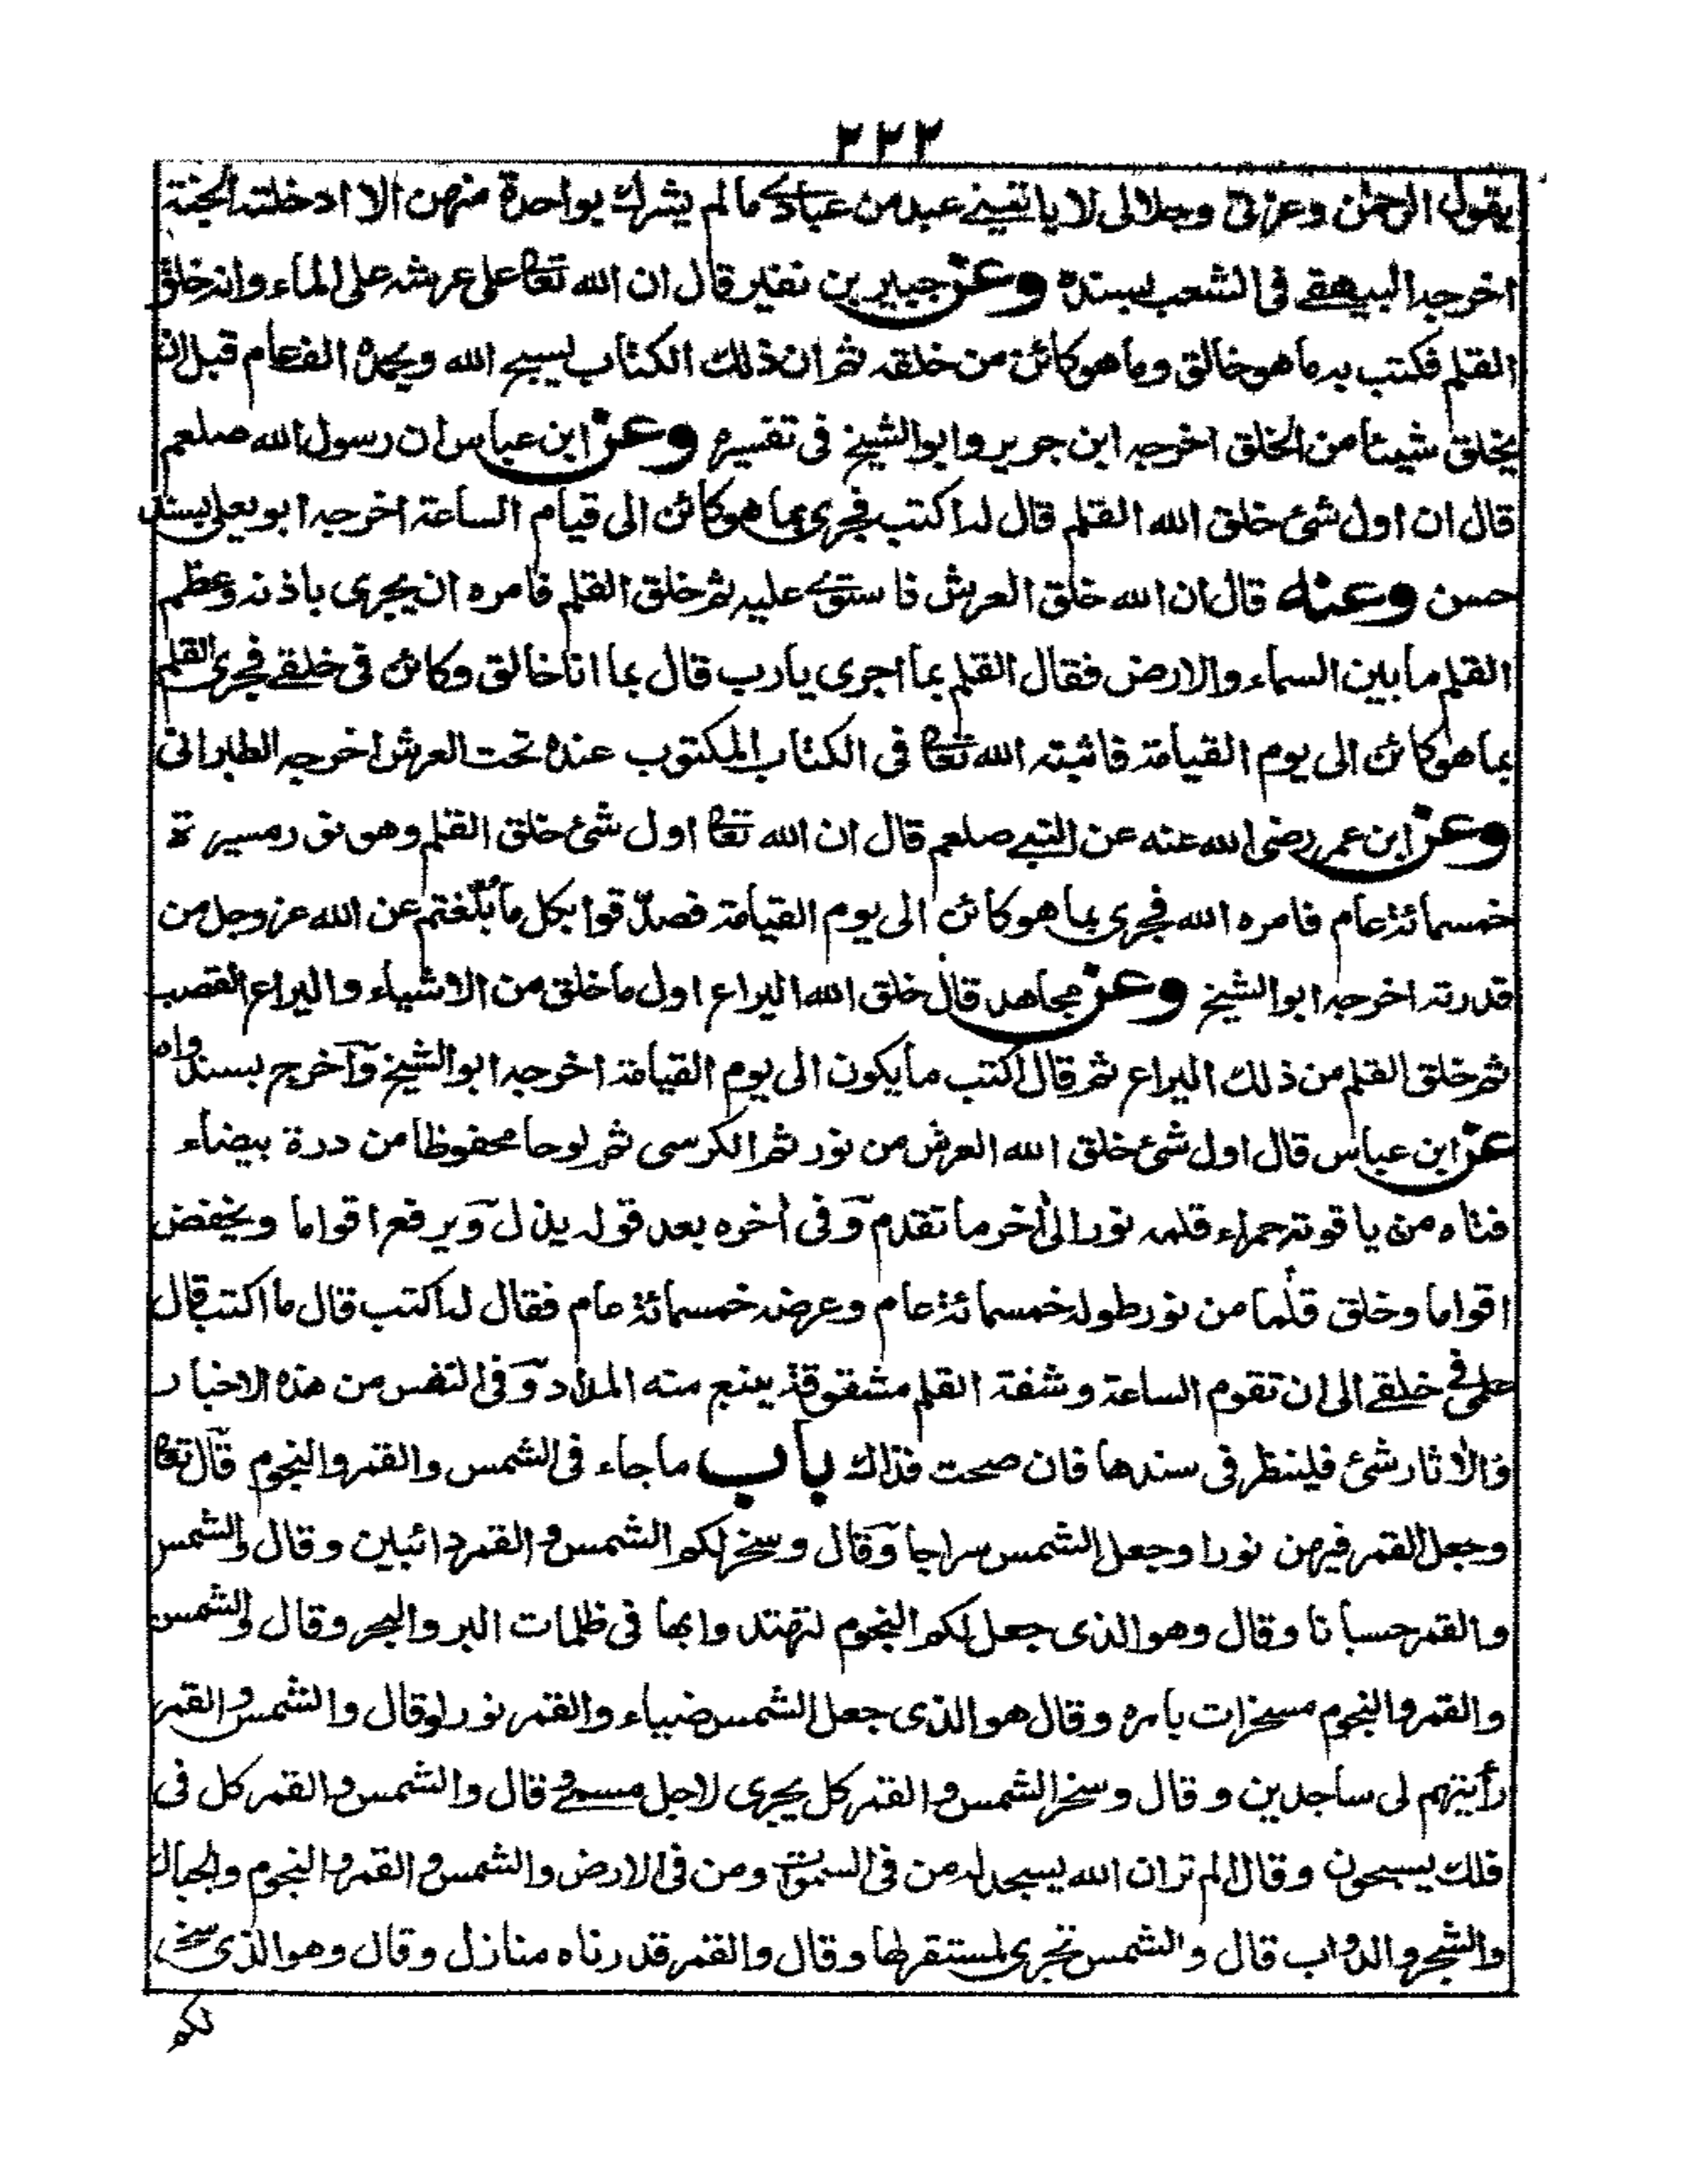 ٢٢٣
يقول الرحمن وعزتي وجلالي لا ياتيني عبد من عبادك ما لم يشرك بواحدة منهن الا ادخلته الجنة
اخرجه البيهقي في الشعب بسنده وعن جبير بن نفير قال ان الله تعالى على عرشه على الماء وانه خلق
القلم فكتب به ما هو خالق وما هو كائن من خلقه ثم ان ذلك الكتاب يسبح الله ويحمده الف عام قبل ان
يخلق شيئا من الخلق اخرجه ابن جرير وابو الشيخ في تفسيره وعن ابن عباس ان رسول الله صلعم
قال ان اول شئ خلق الله القلم قال له اكتب فجرى بما هو كائن الى قيام الساعة اخرجه ابو يعلى بسند
حسن وعنه قال ان الله خلق العرش فاستوى عليه ثم خلق القلم فامره ان يجرى باذنه وعظم
القلم ما بين السماء والارض فقال القلم بما اجرى يا رب قال بما انا خالق وكائن في خلقي فجرى القلم
بما هو كائن الى يوم القيامة فاثبته الله تعالى في الكتاب المكتوب عنده تحت العرش اخرجه الطبراني
وعن ابن عمر رضى الله عنه عن النبي صلعم قال ان الله تعالى اول شئ خلق القلم وهو نور مسيرة
خمسمائة عام فامره الله فجرى بما هو كائن الى يوم القيامة فصدّقوا بكل ما بُلّغتم عن الله عز وجل من
قدرته اخرجه ابو الشيخ وعن مجاهد قال خلق الله اليراع اول ما خلق من الاشياء واليراع القصب
ثم خلق القلم من ذلك اليراع ثم قال اكتب ما يكون الى يوم القيامة اخرجه ابو الشيخ وآخرج بسند واه
عن ابن عباس قال اول شئ خلق الله العرش من نور ثم الكرسى ثم لوحا محفوظا من درة بيضاء
فتاه من ياقوتة حمراء قلمه نور الى أخر ما تقدم وفى أخره بعد قوله يذل ويرفع اقواما ويخفض
اقواما وخلق قلما من نور طوله خمسمائة عام وعرضه خمسمائة عام فقال له اكتب قال ما اكتب قال
علمى في خلقي الى ان تقوم الساعة وشفة القلم مشقوقة ينبع منه المداد وفى النفس من هذه الاخبار
والاثار شئ فلينظر فى سندها فان صحت فذاك باب ما جاء فى الشمس والقمر والنجوم قال تعالى
وجعل القمر فيهن نورا وجعل الشمس سراجا وقال وسخر لكم الشمس والقمر دائبين وقال والشمس
والقمر حسبانا وقال وهو الذى جعل لكم النجوم لتهتدوا بها فى ظلمات البر والبحر وقال والشمس
والقمر والنجوم مسخرات بامره وقال هو الذى جعل الشمس ضياء والقمر نورا وقال والشمس والقمر
رأيتهم لى ساجدين وقال وسخر الشمس والقمر كل يجرى لاجل مسمى وقال والشمس والقمر كل فى
فلك يسبحون وقال الم تر ان الله يسجد له من فى السموات ومن فى الارض والشمس والقمر والنجوم والجبال
والشجر والدواب قال والشمس تجرى لمستقر لها وقال والقمر قدرناه منازل وقال وهو الذى سخر
لكم